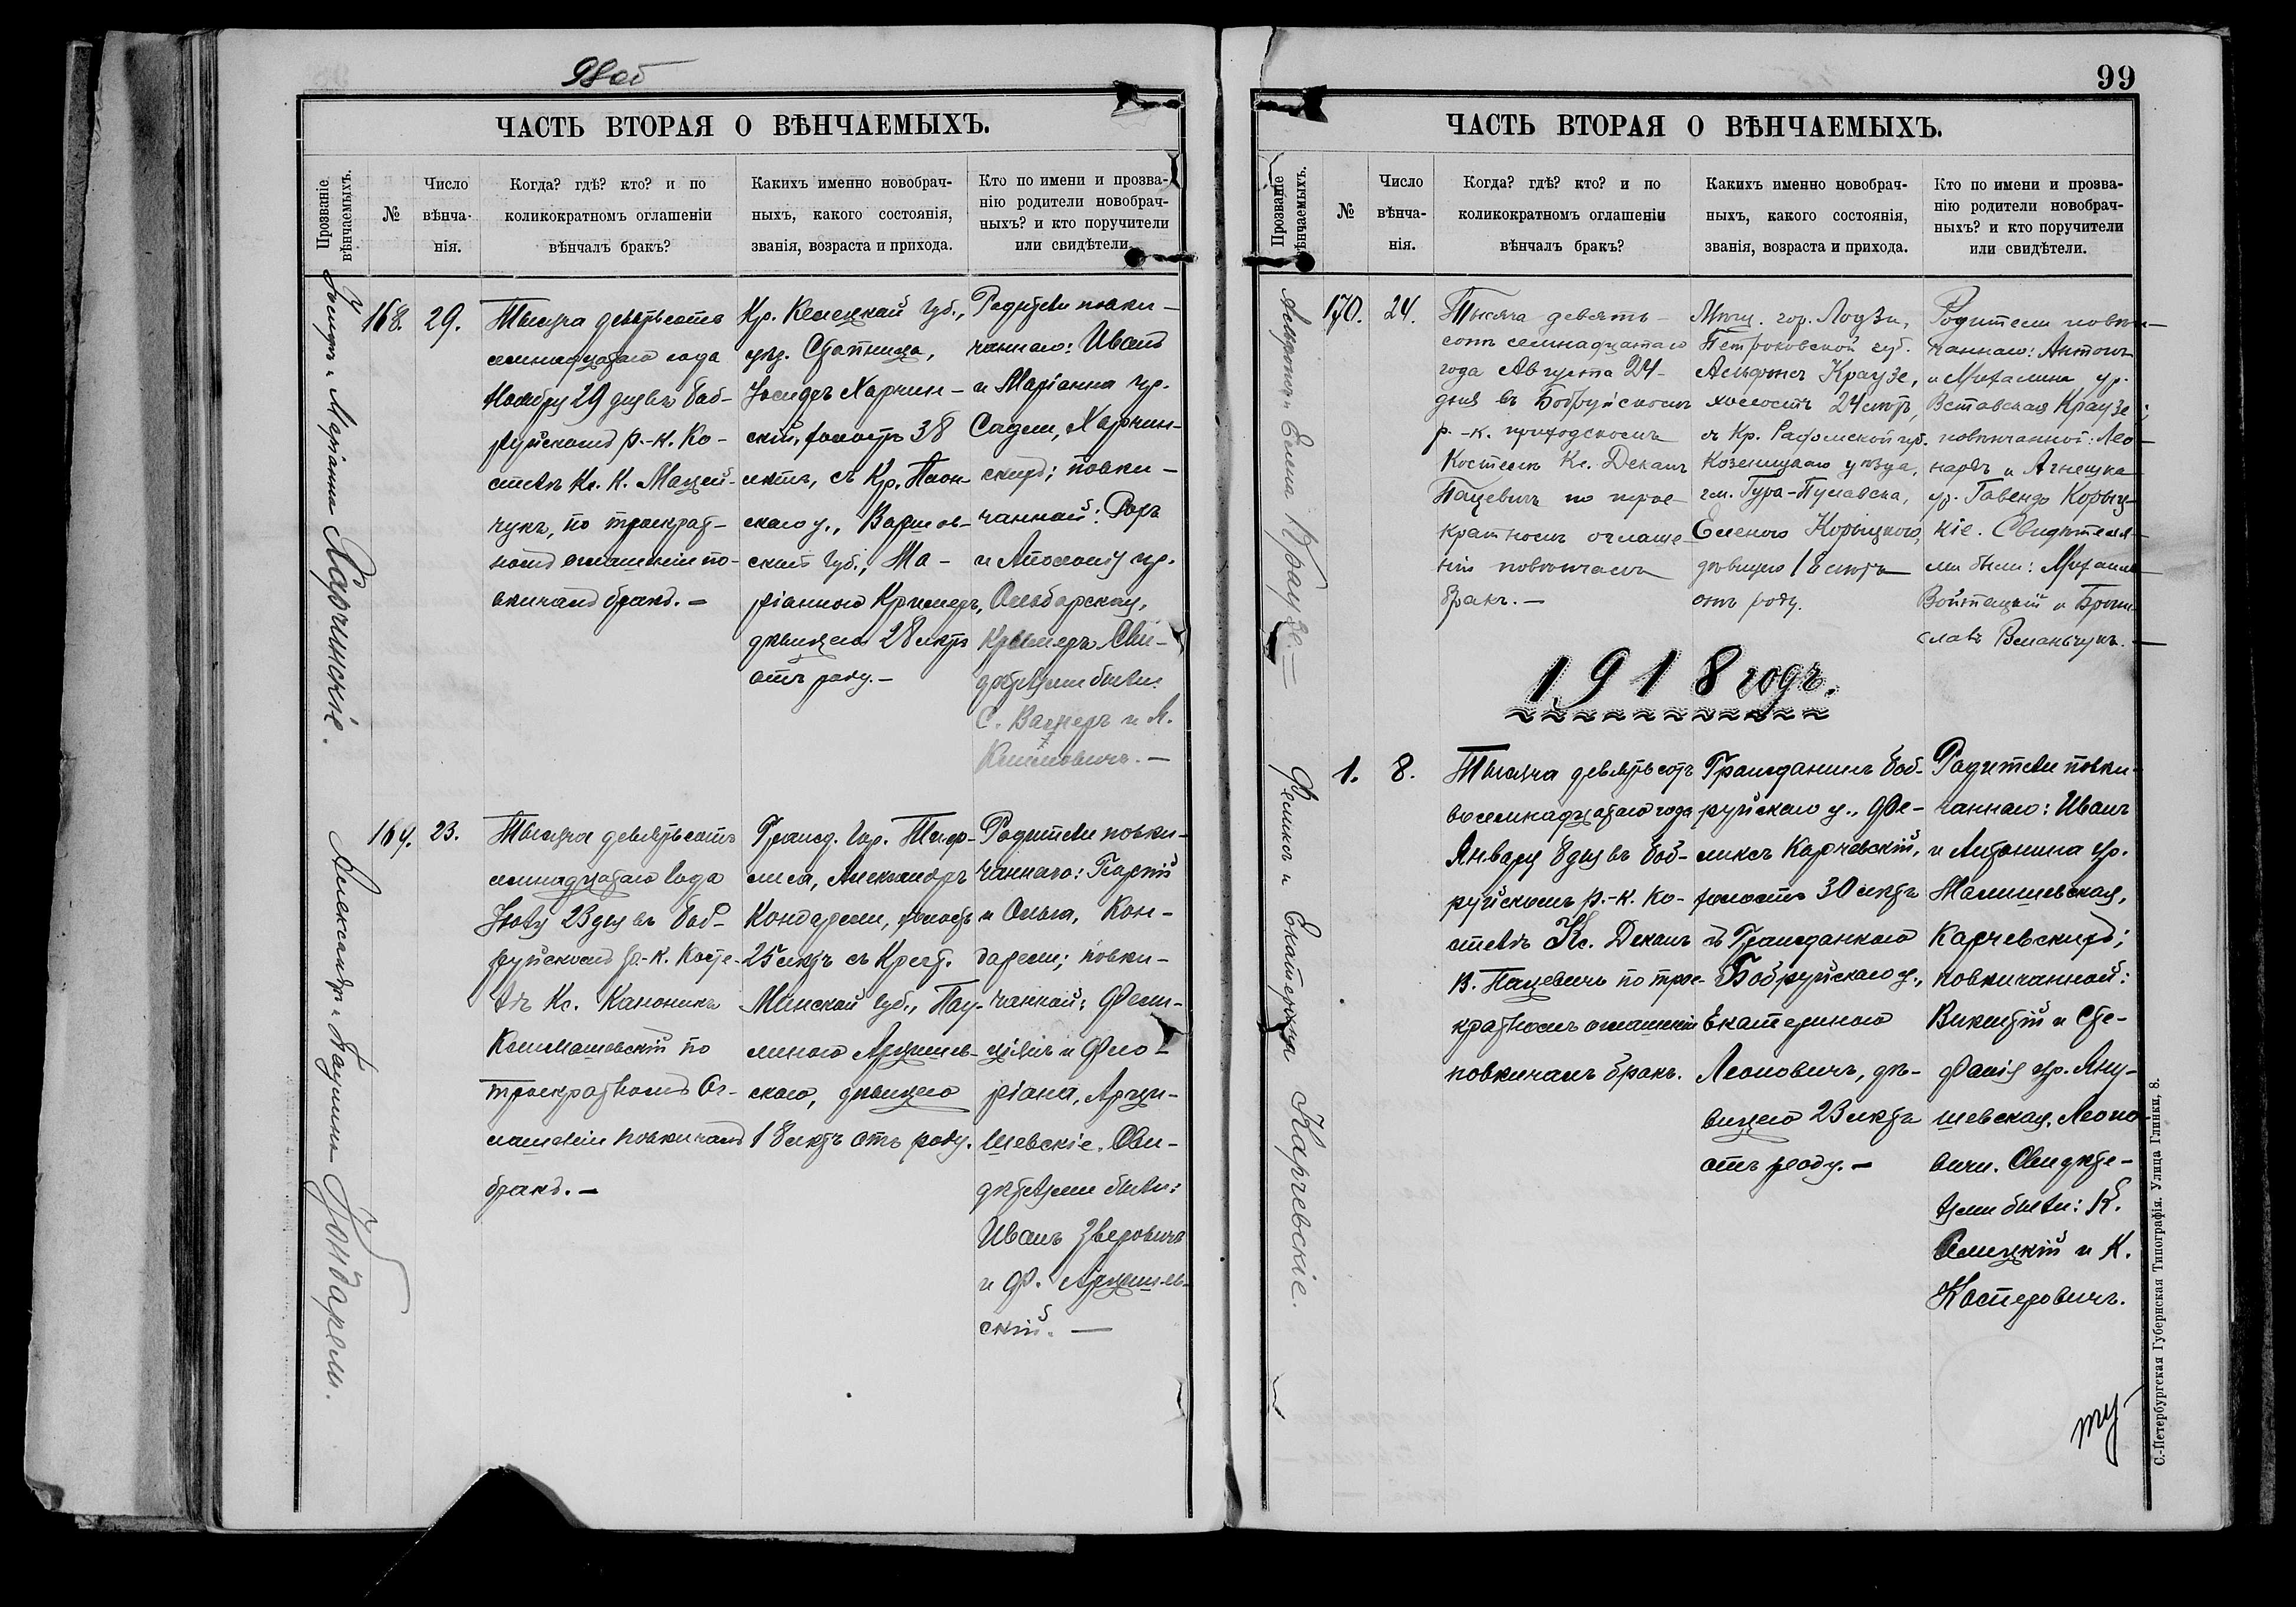 98об
ЧАСТЬ ВТОРАЯ О ВѢНЧАЕМЫХЪ.
Прозваніе вѣнчаемыхъ.
№
Число вѣнча-нія.
Когда? гдѣ? кто? и по
коликократномъ оглашеніи
вѣнчалъ бракъ?
Какихъ именно новобрач-
ныхъ, какого состоянія,
званія, возраста и прихода.
Кто по имени и прозва-
нію родители новобрач-
ныхъ? и кто поручители
или свидѣтели.
Іосифъ и Маріанна Харчинскіе.
168.
29.
Тысяча девятьсотъ
семнадцатаго года
Ноября 29 дня въ Боб-
руйскомъ р.-к. Ко-
стелѣ Кс. К. Мацей-
чукъ, по троекрат-
номъ оглашеніи по-
вѣнчалъ бракъ. —
Кр. Келецкой губ.,
Іосифъ Харчин-
скій, холостъ 38
лѣтъ, съ Кр. Плон-
скаго у., Варшав-
ской губ., Ма-
ріанною Кримеръ,
дѣвицею 28 лѣтъ
отъ роду. —
Родители повѣн-
чаннаго: Иванъ
и Маріанна ур.
Харчин-
скихъ; повѣн-
чанной:
и Аполонія ур.
Кримеръ. Сви-
дѣтелями были:
С. Вагнеръ и А.
169.
23.
Александръ и Паулина Кондарели.
Тысяча девятьсотъ
семнадцатаго года
23 дня въ Боб-
руйскомъ р.-к. Косте-
лѣ Кс. Каноникъ
по
троекратномъ Ог-
лашеніи повѣнчалъ
бракъ. —
Гражд. гор. Тиф-
лиса, Александръ
Кондарели, холостъ
25 лѣтъ съ Крест.
Минской губ., Пау-
линою Арцишев-
скою, дѣвицею
18 лѣтъ отъ роду.
Родители повѣн-
чаннаго: Георгій
и Ольга, Кон-
дарели; повѣн-
чанной: Фели-
ціянъ и Фло-
ріана, Арци-
шевскіе. Сви-
дѣтелями были:
Иванъ Зверовичъ
и Ф. Арцишев-
скій. —
99
ЧАСТЬ ВТОРАЯ О ВѢНЧАЕМЫХЪ.
Прозваніе вѣнчаемыхъ.
№
Число вѣнча-нія.
Когда? гдѣ? кто? и по
коликократномъ оглашеніи
вѣнчалъ бракъ?
Какихъ именно новобрач-
ныхъ, какого состоянія,
званія, возраста и прихода.
Кто по имени и прозва-
нію родители новобрач-
ныхъ? и кто поручители
или свидѣтели.
Альфонсъ и Елена Краузе. —
170.
24.
Тысяча девять-
сотъ семнадцатаго
года Августа 24-
дня въ Бобруйскомъ
р.-к. приходскомъ
Костелѣ Кс. Деканъ
Пацевичъ по трое-
кратномъ оглаше-
ніи повѣнчалъ
бракъ. —
Мѣщ. гор. Лодзи,
Петроковской губ.
Альфонсъ Краузе,
холостъ 24 лѣтъ,
съ Кр. Радомской губ.
Козеницкаго уѣзда,
гм. Гура-Пулавска,
Еленою Корыцкою,
дѣвицею 18 лѣтъ
отъ роду.
Родители повѣн-
чаннаго: Антонъ
и Михалина ур.
Вставская Краузе;
повѣнчанной: Лео-
нардъ и Агнешка
ур. Гавенда Корыц-
кіе. Свидѣтеля-
ми были: Михаилъ
Войтацкій и Брони-
славъ
1918 годъ.
Феликсъ и Екатерина Карчевскіе.
1.
8.
Тысяча девятьсотъ
восемнадцатаго года
Января 8 дня въ Боб-
руйскомъ р.-к. Ко-
стелѣ Кс. Деканъ
В. Пацевичъ по трое-
кратномъ оглашеніи
повѣнчалъ бракъ.
Гражданинъ Боб-
руйскаго у., Фе-
ликсъ Карчевскій,
холостъ 30 лѣтъ
съ Гражданкою
Бобруйскаго у.,
Екатериною
Леоновичъ, дѣ-
вицею 23 лѣтъ
отъ роду. —
Родители повѣн-
чаннаго: Иванъ
и Антонина ур.
Малишевская,
Карчевскихъ;
повѣнчанной:
Викентій и Сте-
фанія ур. Яну-
шевская, Леоно-
вичи. Свидѣте-
лями были: К.
и К.
Костеровичъ.
С.-Петербургская Губернская Типографія. Улица Глинки, 8.